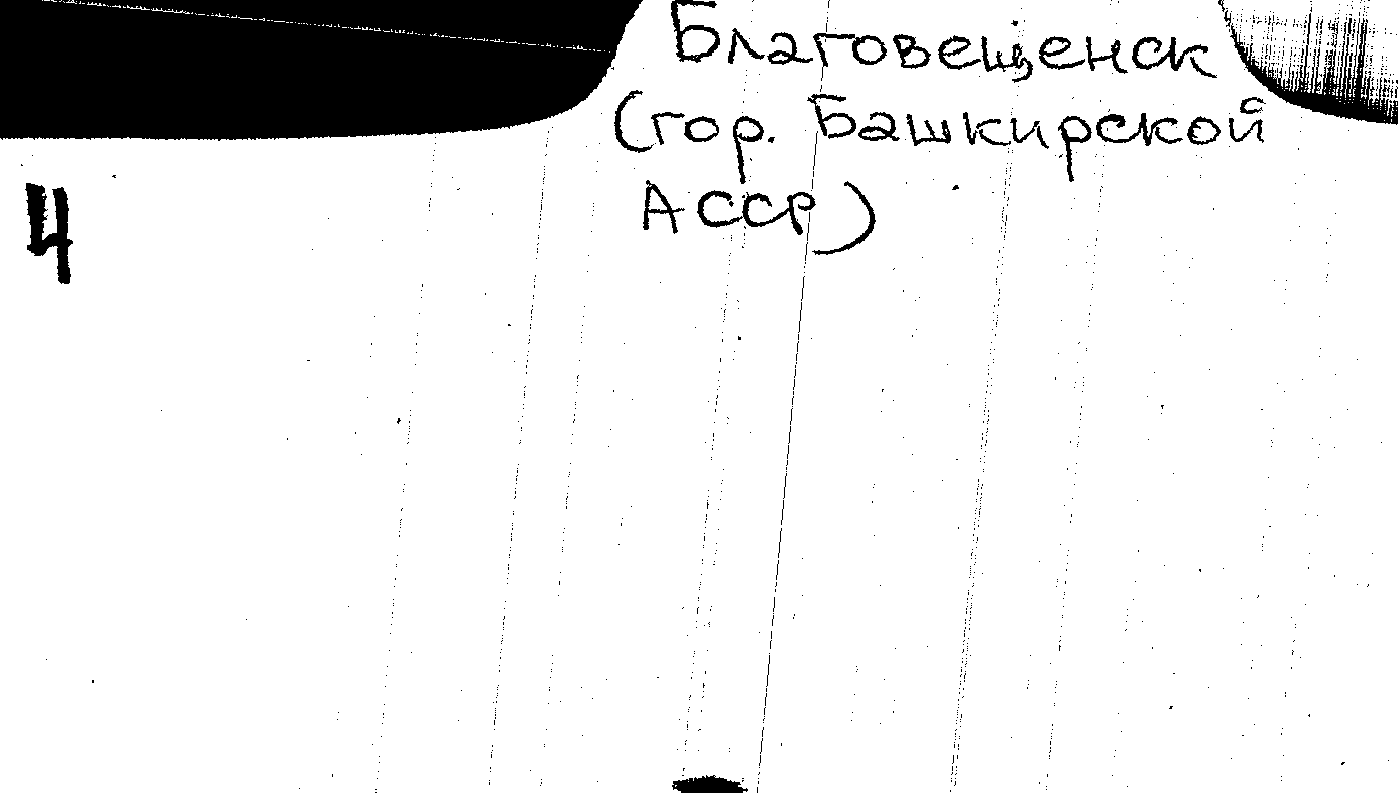 Благовещенск
(гор. Башкирской
АССР)
4